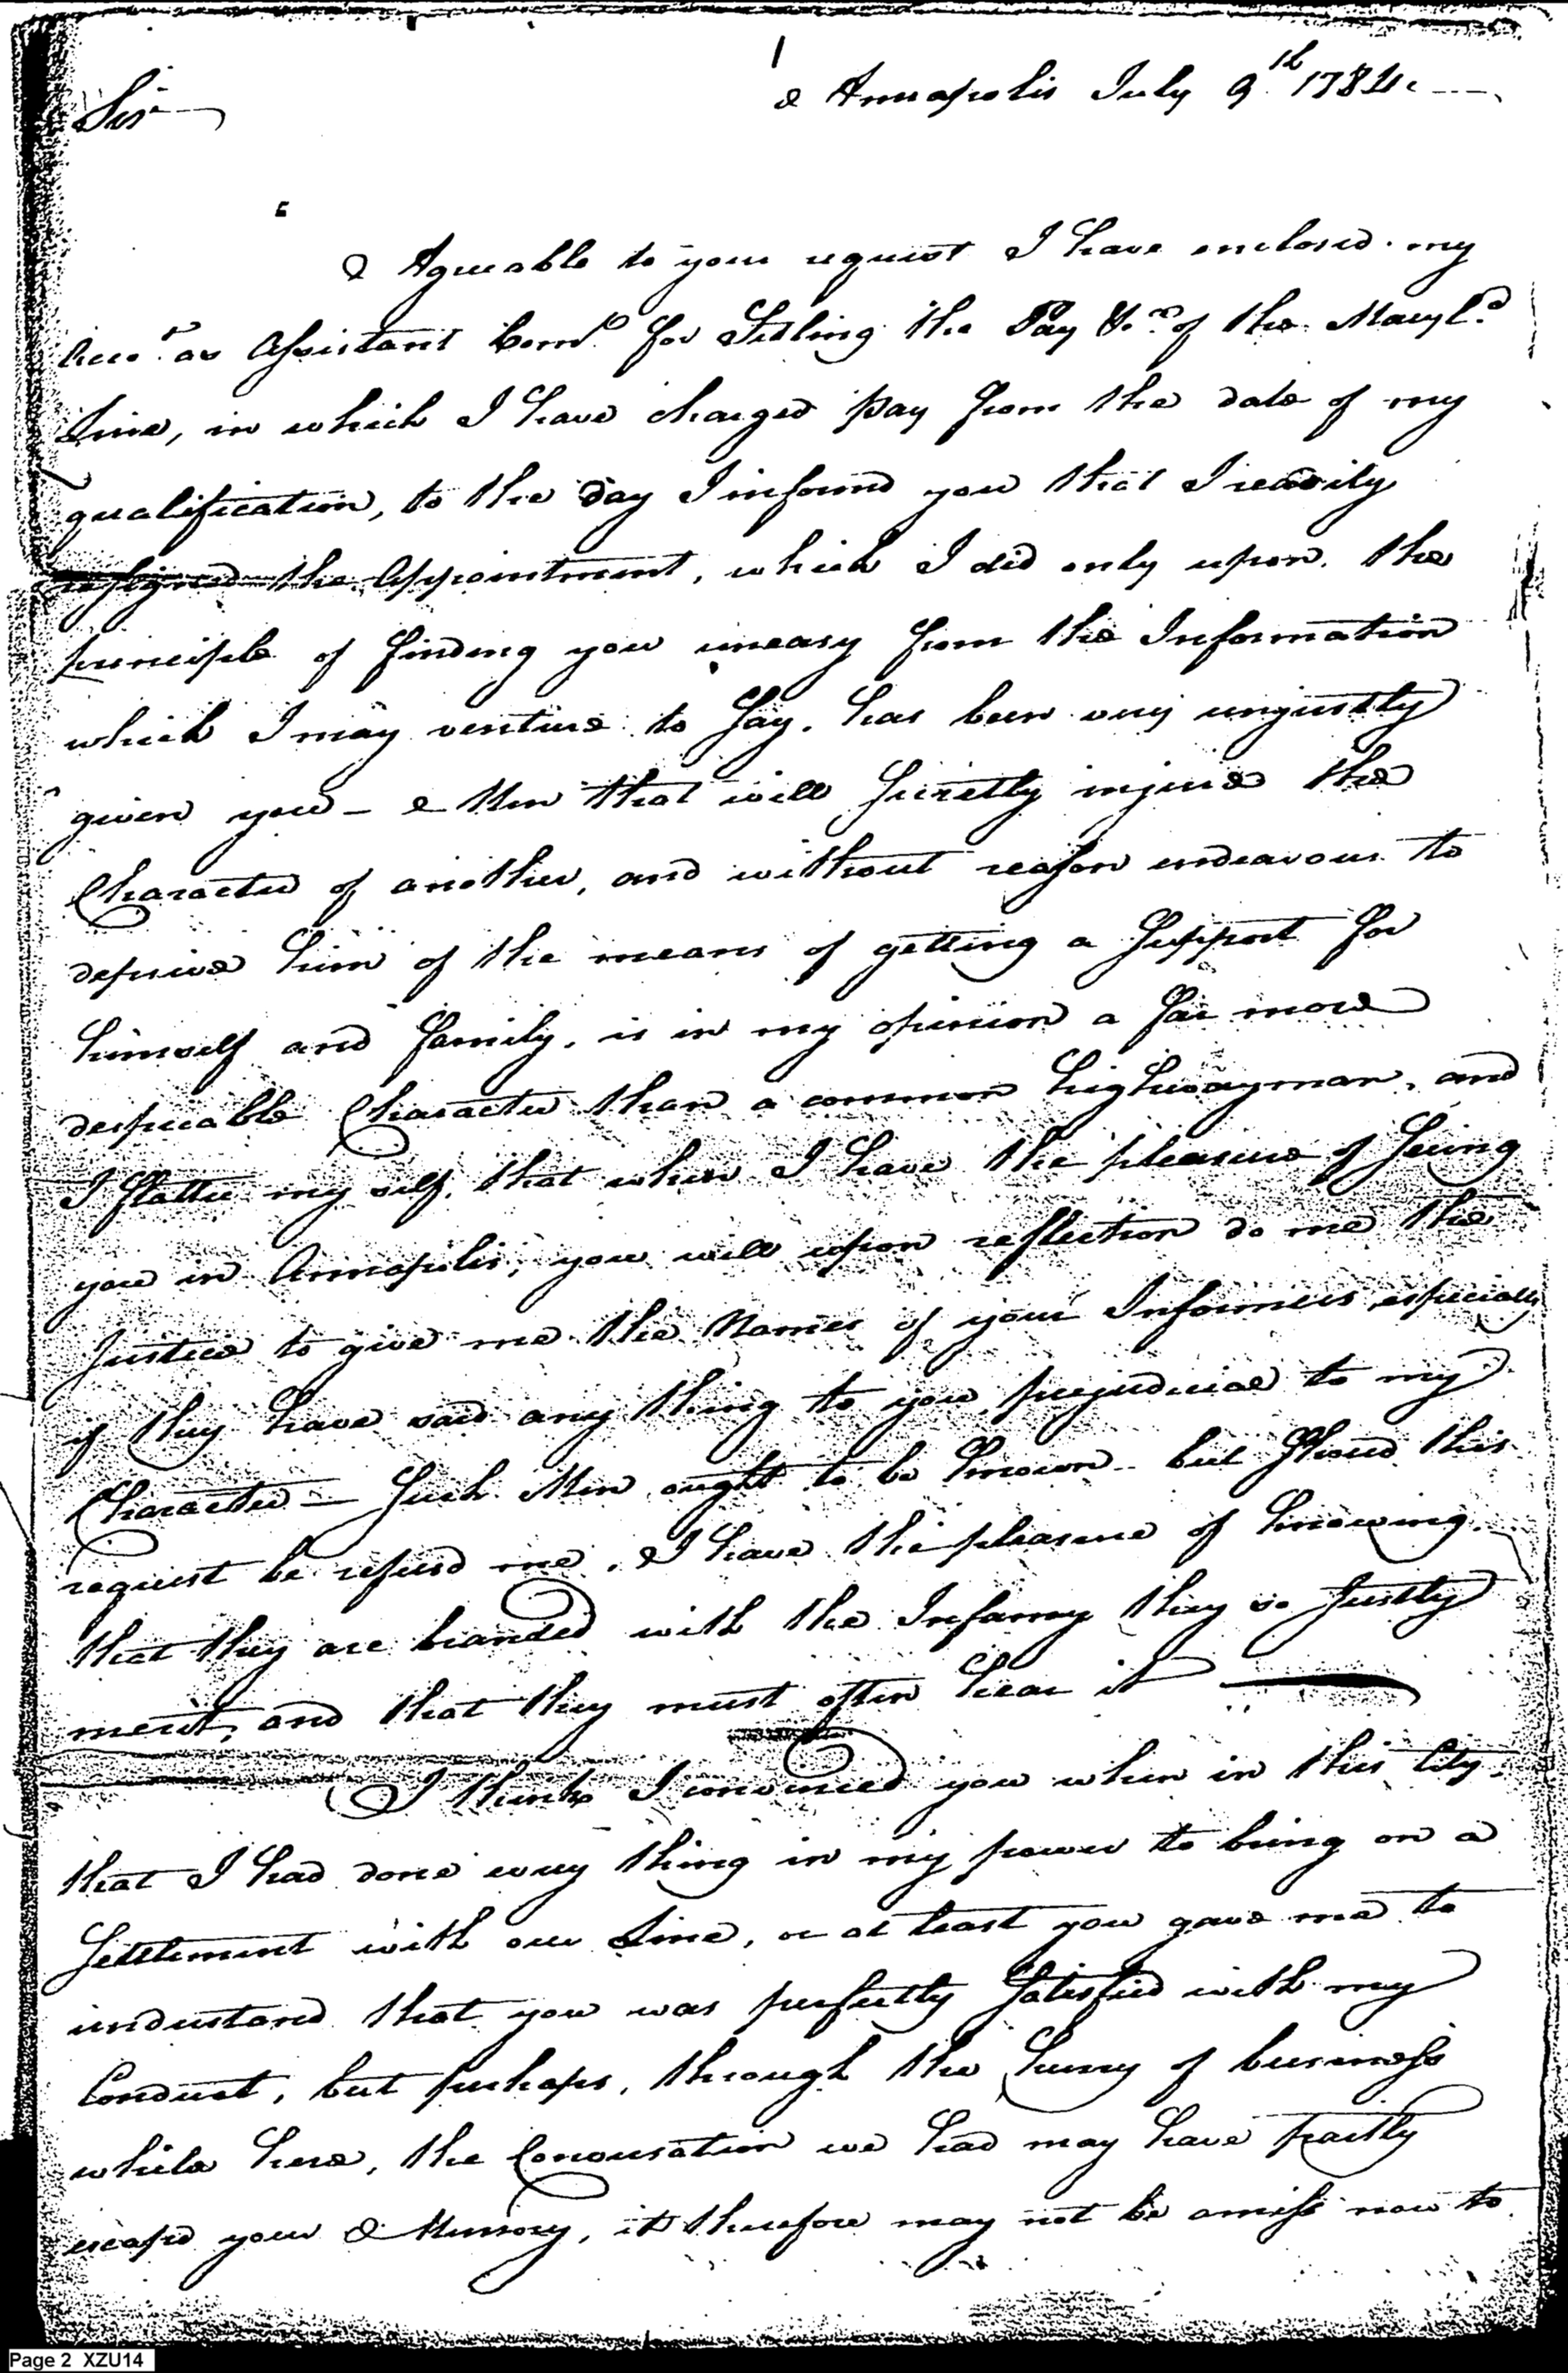 Annapolis July 9th 1784.
Sir
Agreeable to your request I have enclosed my
Acco.t as Assistant Comr. for Settling the Pay &c.a of the Maryl.d
Line, in which I have charged pay from the date of my
qualification, to the day I informd you that I readily
resigned the Appointment, which I did only upon the
principle of finding you uneasy from the Information
which I may venture to Say, has been very unjustly
given you – Men that will Secretly injure the
Character of another, and without reason endeavour to
deprive him of the means of getting a Support for
himself and family, is in my opinion a far more
despicable Character than a common highwayman, and
I flatter my self, that when I have the pleasure of Seeing
you in Annapolis, you will upon reflection do me the
Justice to give me the Names of your Informers especially
if they have said any thing to you prejudicial to my
Character – Such Men ought to be known – but Shoud this
request be refused me, I have the pleasure of knowing
that they are branded with the Infamy they so Justly
merit, and that they must often hear it
I think I convinced you when in this City,
that I had done every thing in my power to bring on a
Settlement with our Line, or at least you gave me to
understand that you was perfectly Satisfied with my
Conduct, but perhaps, through the hurry of business
while here, the Conversation we had may have partly
escapd your Memory, it therefore may not be amiss now to
Page 2 XZU14